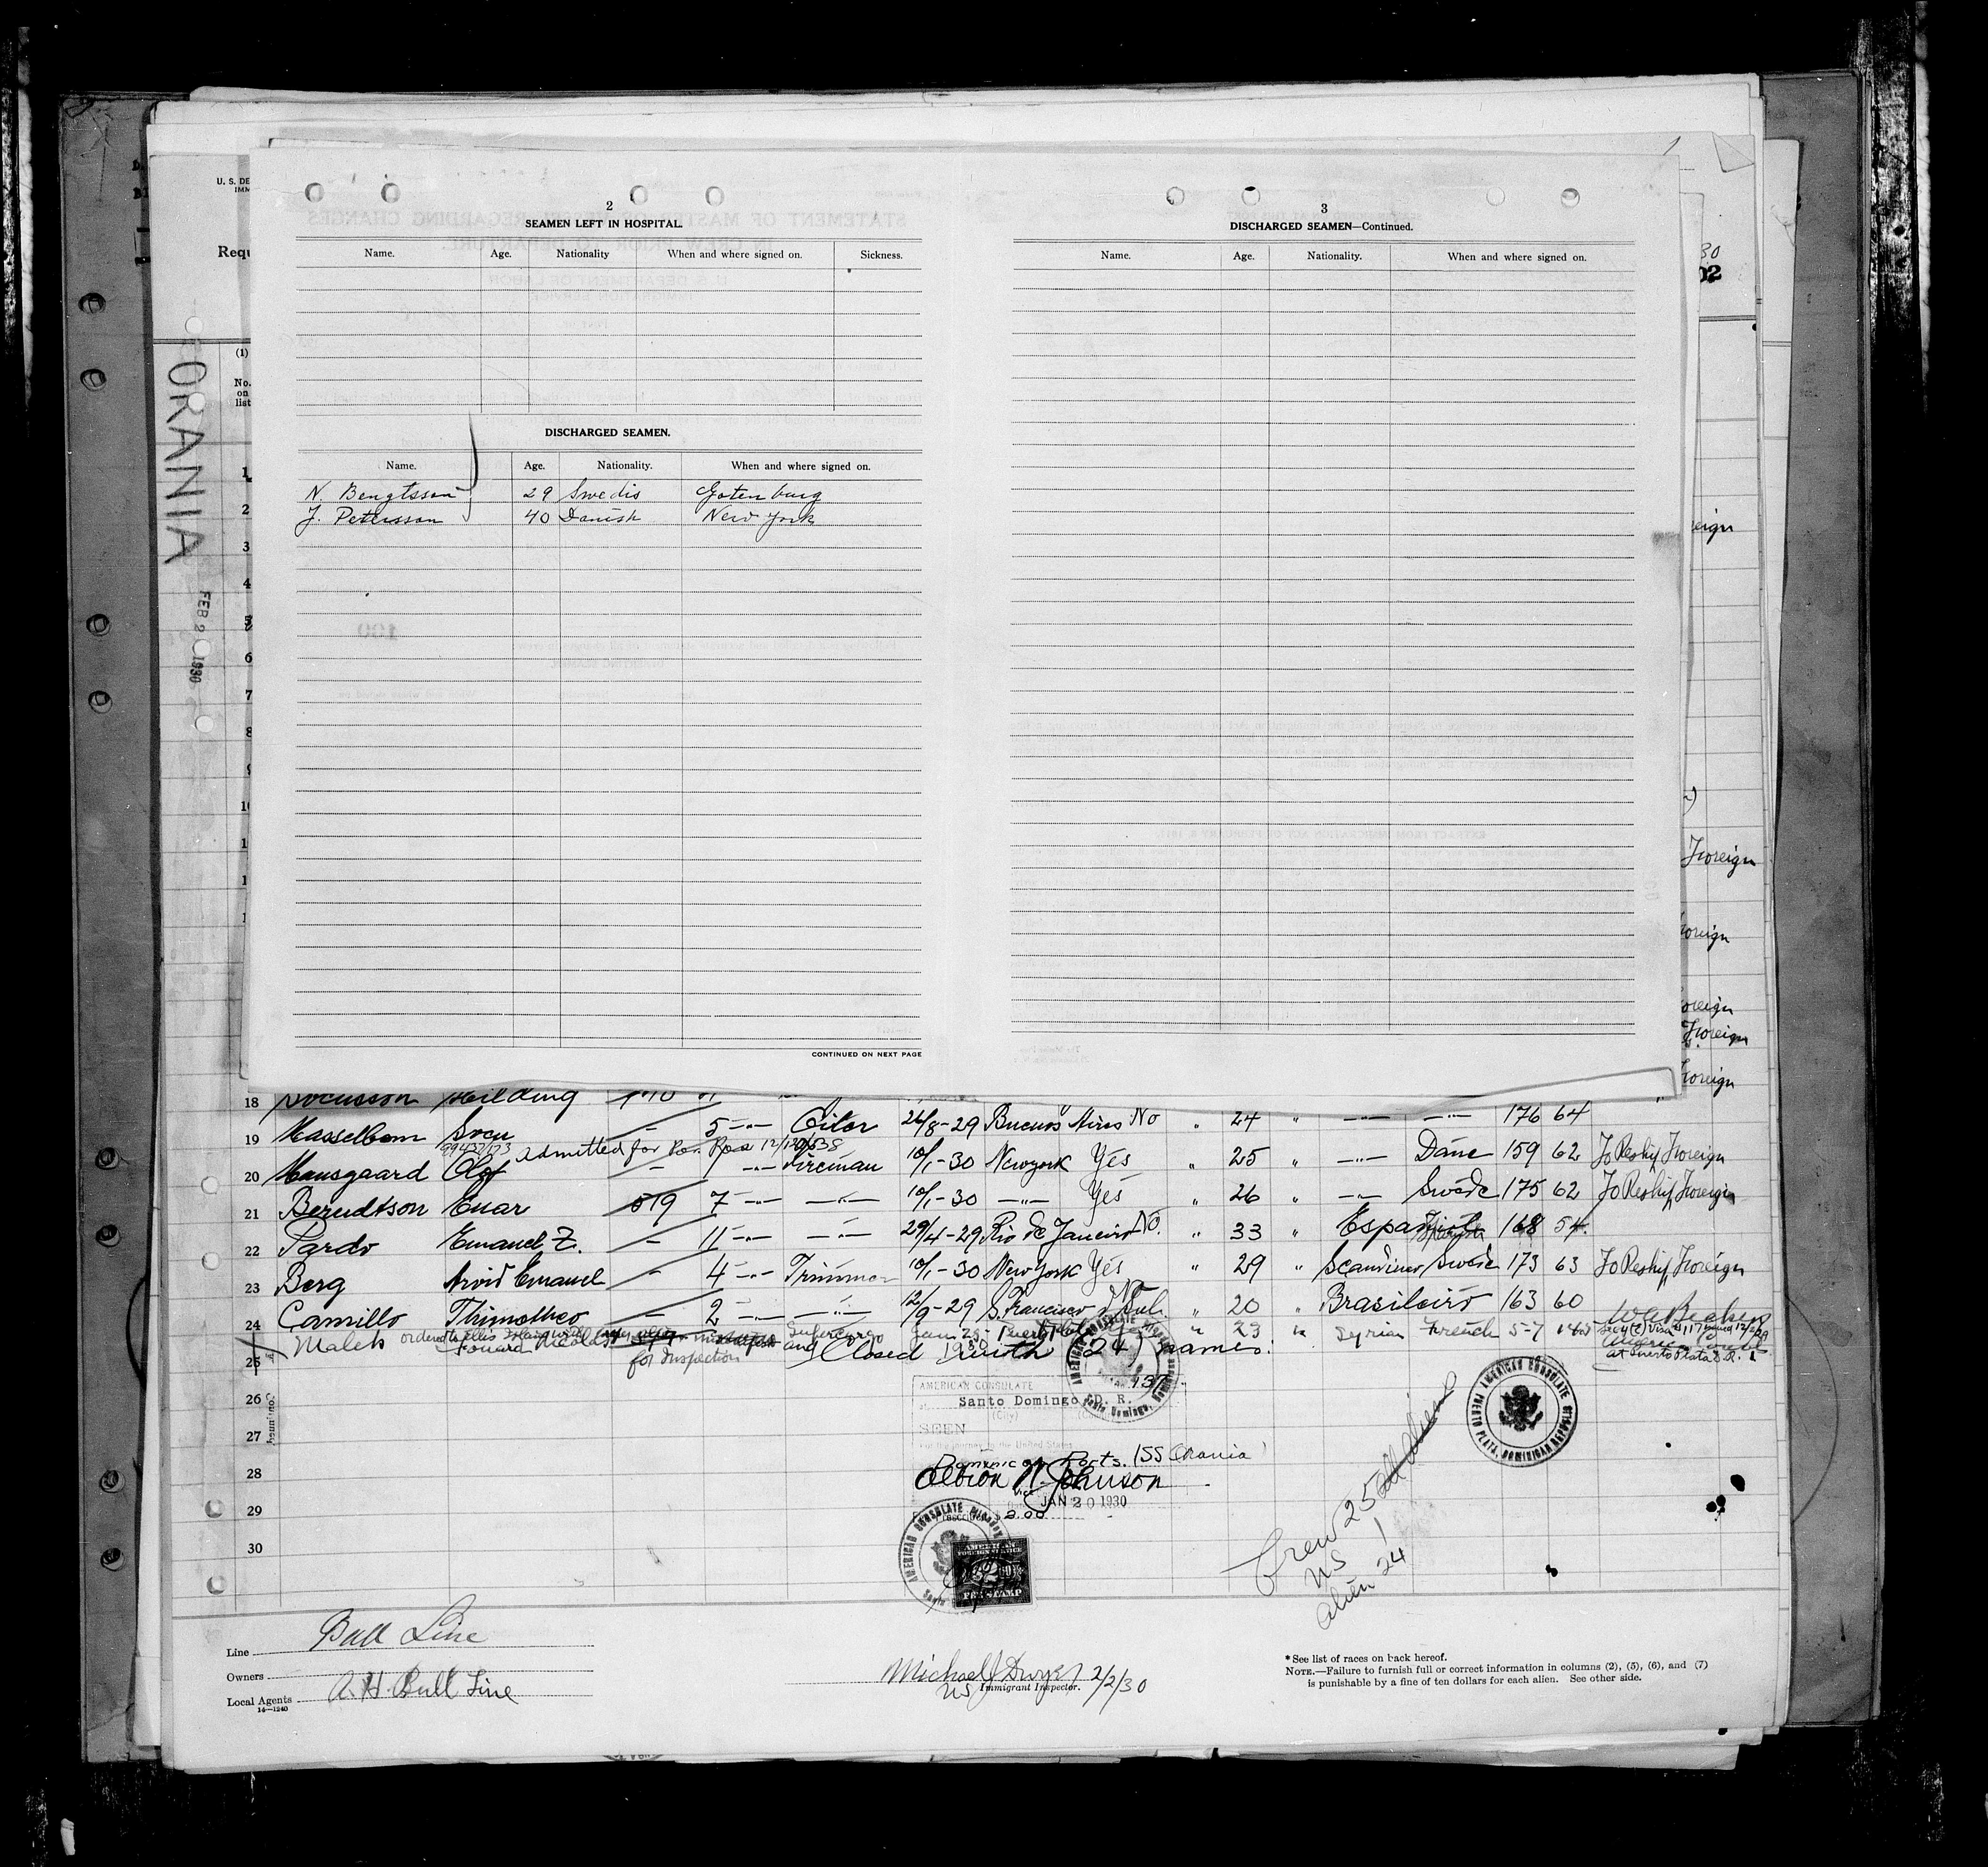 U. S. DE
IMM
Requ
ORANIA
FEB 2 1930
(1)
No.
on
list
2
SEAMEN LEFT IN HOSPITAL.
Name. Age. Nationality When and where signed on. Sickness.
DISCHARGED SEAMEN.
Name. Age. Nationality. When and where signed on.
N. Bengtsson 29 Swedis Gotenburg
J. Petersson 40 Danish New York
CONTINUED ON NEXT PAGE
3
DISCHARGED SEAMEN—Continued.
Name. Age. Nationality. When and where signed on.
30
02
1
2
3
4
5
6
7
8
eign
Foreign
oreign
oreign
Foreign
oreign
18 Hilding
19 Hasselbom Sven — 5 —"— Oiler 26/8-29 Buenos Aires No " 24 " —"— —"— 176 64
99437/173 admitted for
20 Mansgaard Olof — 1 —"— Fireman 10/1-30 Newyork Yes " 25 " —"— Dane 159 62 To Reship Foreign
21 Berndtson Enar 519 7 —"— —"— 10/1-30 —"— Yes " 26 " —"— Swede 175 62 To Reship Foreign
22 Pardo Emanuel Z. — 11 —"— —"— 29/4-29 Rio de Janeiro No. " 33 " Español 168 54
23 Berg Arvid Emanuel — 4 —"— Trimmer 10/1-30 New York Yes " 29 " Scandinav Swede 173 63 To Reship Foreign
24 Camillo Thimotheo — 2 —"— —"— 12/9-29 S. Francisco d Sul. No " 20 " Brasileiro 163 60
Malek ordered to Ellis Island with Supercargo Jan. 25- Puerto Plata Yes " 23 " Syrian French 5-7
25 for Inspection and Closed 1930 with (24) names.
at Puerto Plata D.R.
26
27
28
29
30
AMERICAN CONSULATE
Santo Domingo, D. R.
(City)
SEEN
For the journey to the United States
Dominican Ports. (SS Orania)
Albion W. Johnson
Vice
JAN 20 1930
2.00
AMERICAN CONSULATE
PUERTO PLATA, DOMINICAN REPUBLIC
AMERICAN
FOREIGN SERVICE
FEE STAMP
Crew 25
US 1
Alien 24
Line Bull Line
Owners
Local Agents A.H. Bull Line
14—1240
Michael J Dwyer 2/2/30
US Immigrant Inspector.
* See list of races on back hereof.
NOTE.—Failure to furnish full or correct information in columns (2), (5), (6), and (7)
is punishable by a fine of ten dollars for each alien. See other side.